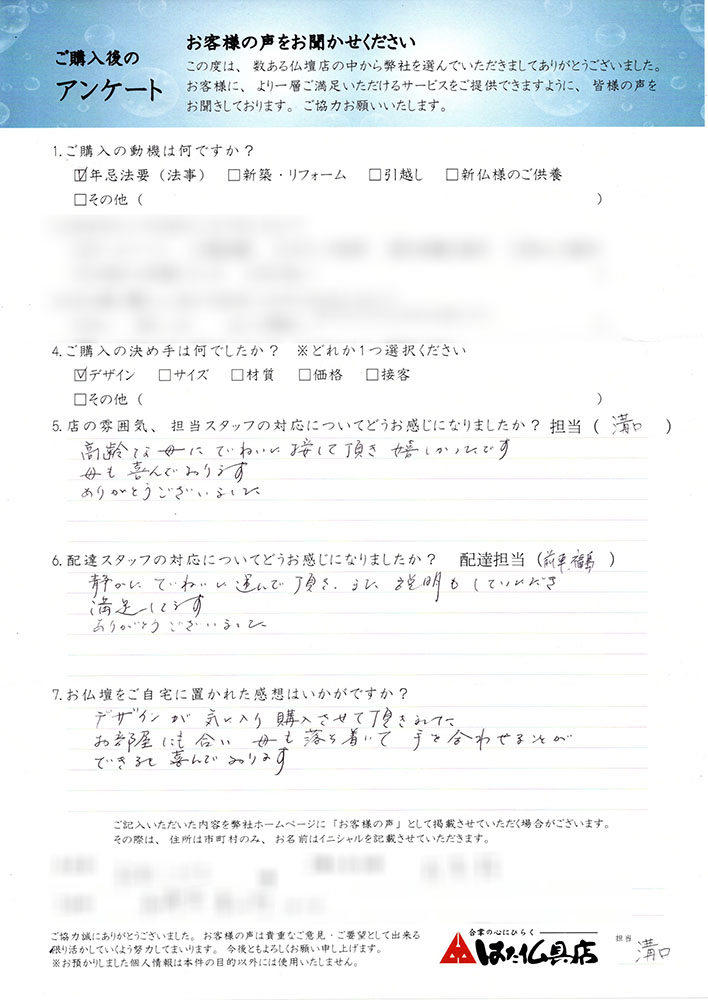 ご購入後の
アンケート
お客様の声をお聞かせください
この度は、数ある仏壇店の中から弊社を選んでいただきましてありがとうございました。
お客様に、より一層ご満足いただけるサービスをご提供できますように、皆様の声を
お聞きしております。ご協力お願いいたします。
1.ご購入の動機は何ですか？
☑年忌法要（法事） □新築・リフォーム □引越し □新仏様のご供養
□その他（ ）
4.ご購入の決め手は何でしたか？ ※どれか1つ選択ください
☑デザイン □サイズ □材質 □価格 □接客
□その他（ ）
5.店の雰囲気、担当スタッフの対応についてどうお感じになりましたか？ 担当（ 溝口 ）
高齢な母にていねいに接して頂き嬉しかったです
母も喜んでおります
ありがとうございました
6.配達スタッフの対応についてどうお感じになりましたか？ 配達担当（ 福島 ）
静かにていねいに運んで頂き、また説明もしていただき
満足してます
ありがとうございました
7.お仏壇をご自宅に置かれた感想はいかがですか？
デザインが気に入り購入させて頂きました
お部屋にも合い母も落ち着いて手を合わせることが
できると喜んでおります
ご記入いただいた内容を弊社ホームページに「お客様の声」として掲載させていただく場合がございます。
その際は、住所は市町村のみ、お名前はイニシャルを記載させていただきます。
ご協力誠にありがとうございました。お客様の声は貴重なご意見・ご要望として出来る
限り活かしていくよう努力してまいります。今後ともよろしくお願い申し上げます。
※お預かりしました個人情報は本件の目的以外には使用いたしません。
合掌の心にひらく
はた仏具店
担当
溝口